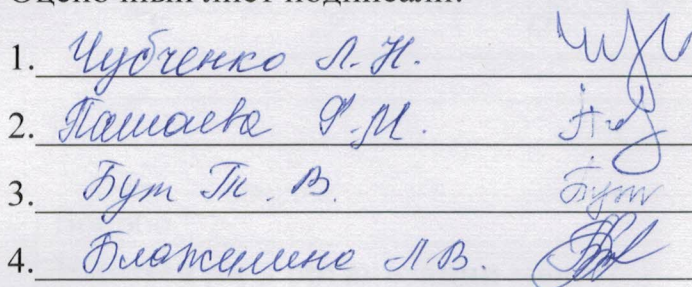 Оценочный лист подписали:
1. Чубченко Л. Н.
2. Пашаева Ф. М.
3. Бут Т. В. Бут
4. Блажилина Л В.